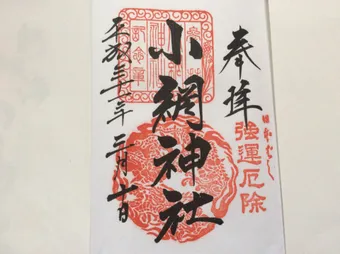 奉拝
強運厄除
小網神社
平成三十一年二月十日